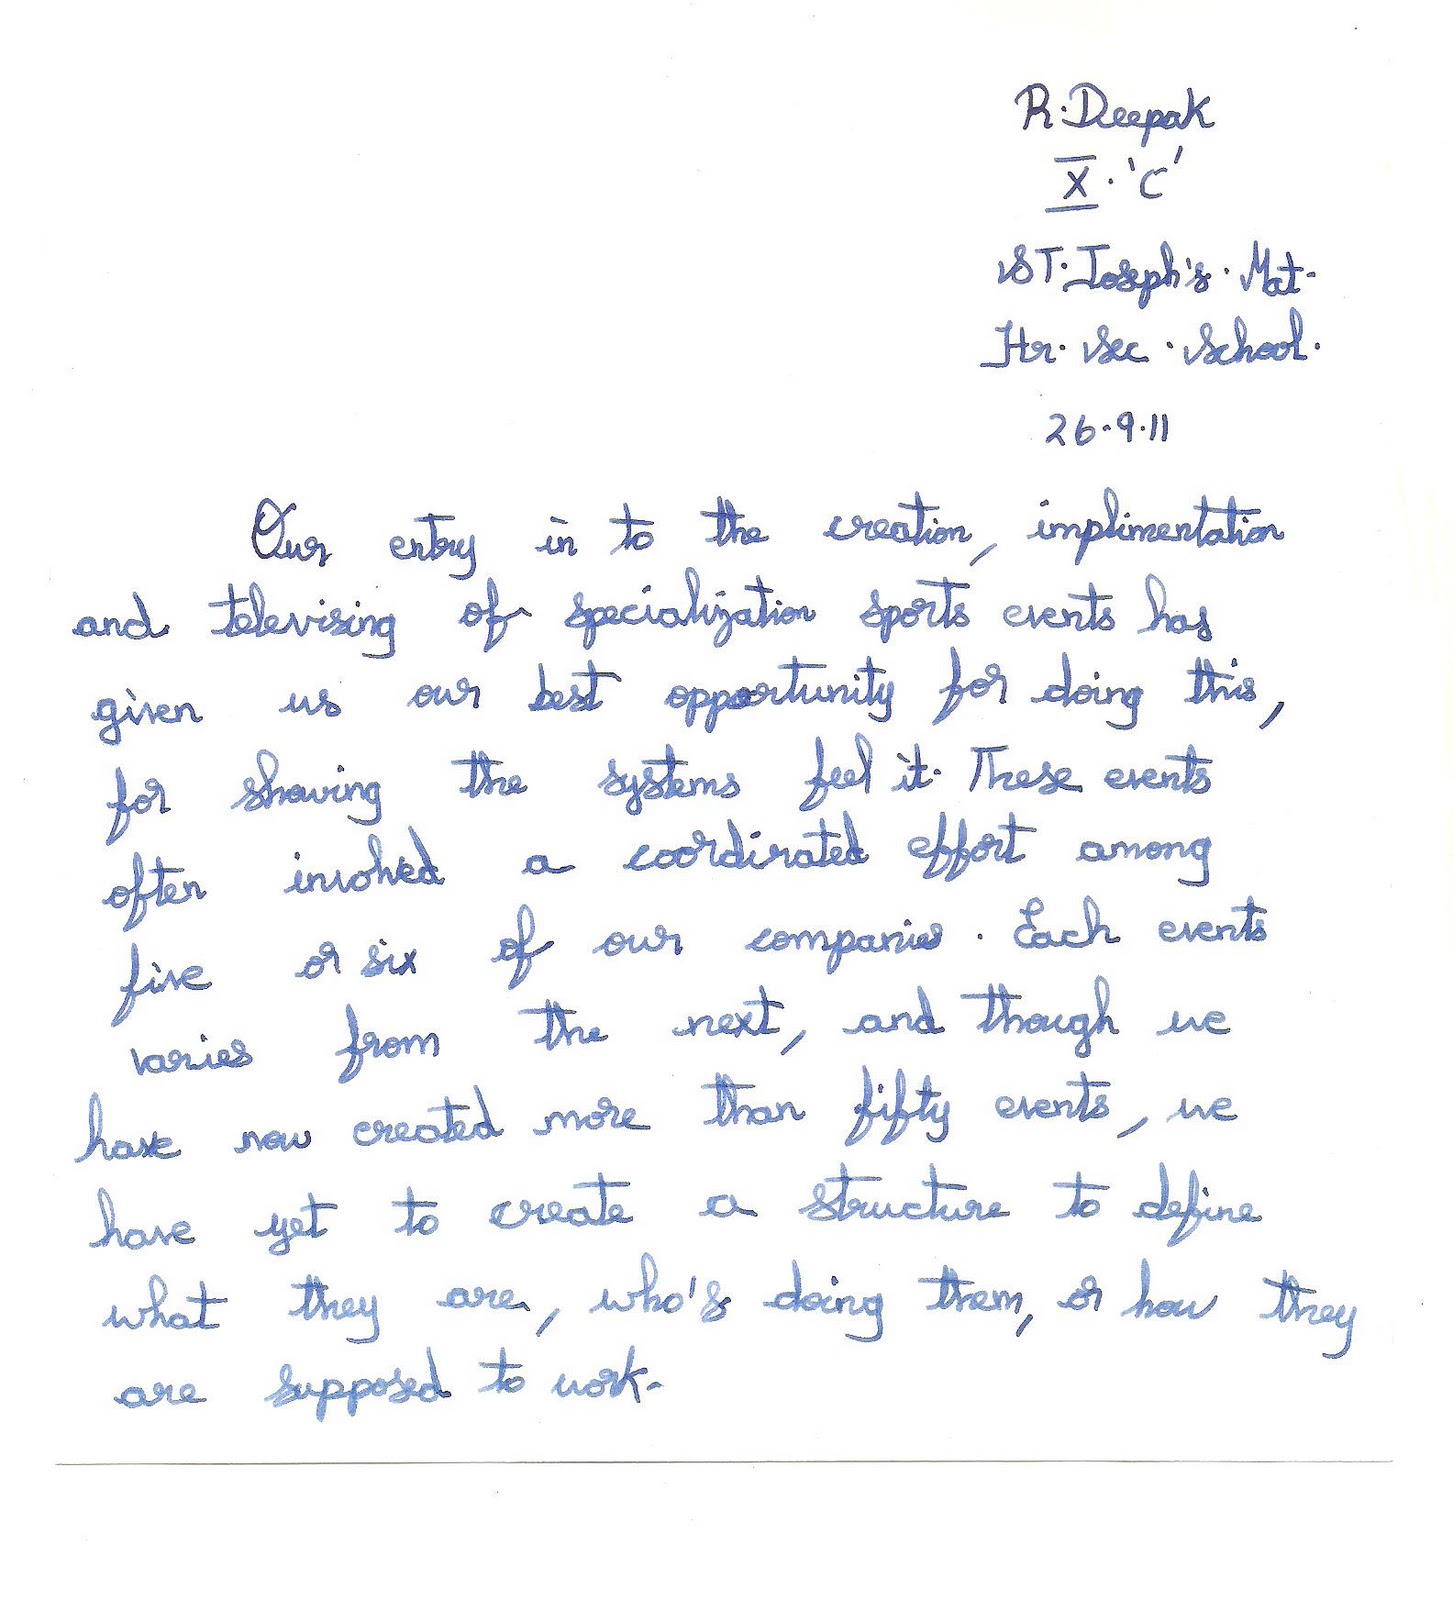 R. Deepak
X. 'C'
ST. Joseph's. Mat.
Hr. Sec. School.
26.9.11
Our entry in to the creation, implimentation
and televising of specialization sports events has
given us our best opportunity for doing this,
for shaving the systems feel it. These events
often involved a coordinated effort among
five or six of our companies. Each events
varies from the next, and though we
have now created more than fifty events, we
have yet to create a structure to define
what they are, who's doing them, or how they
are supposed to work.